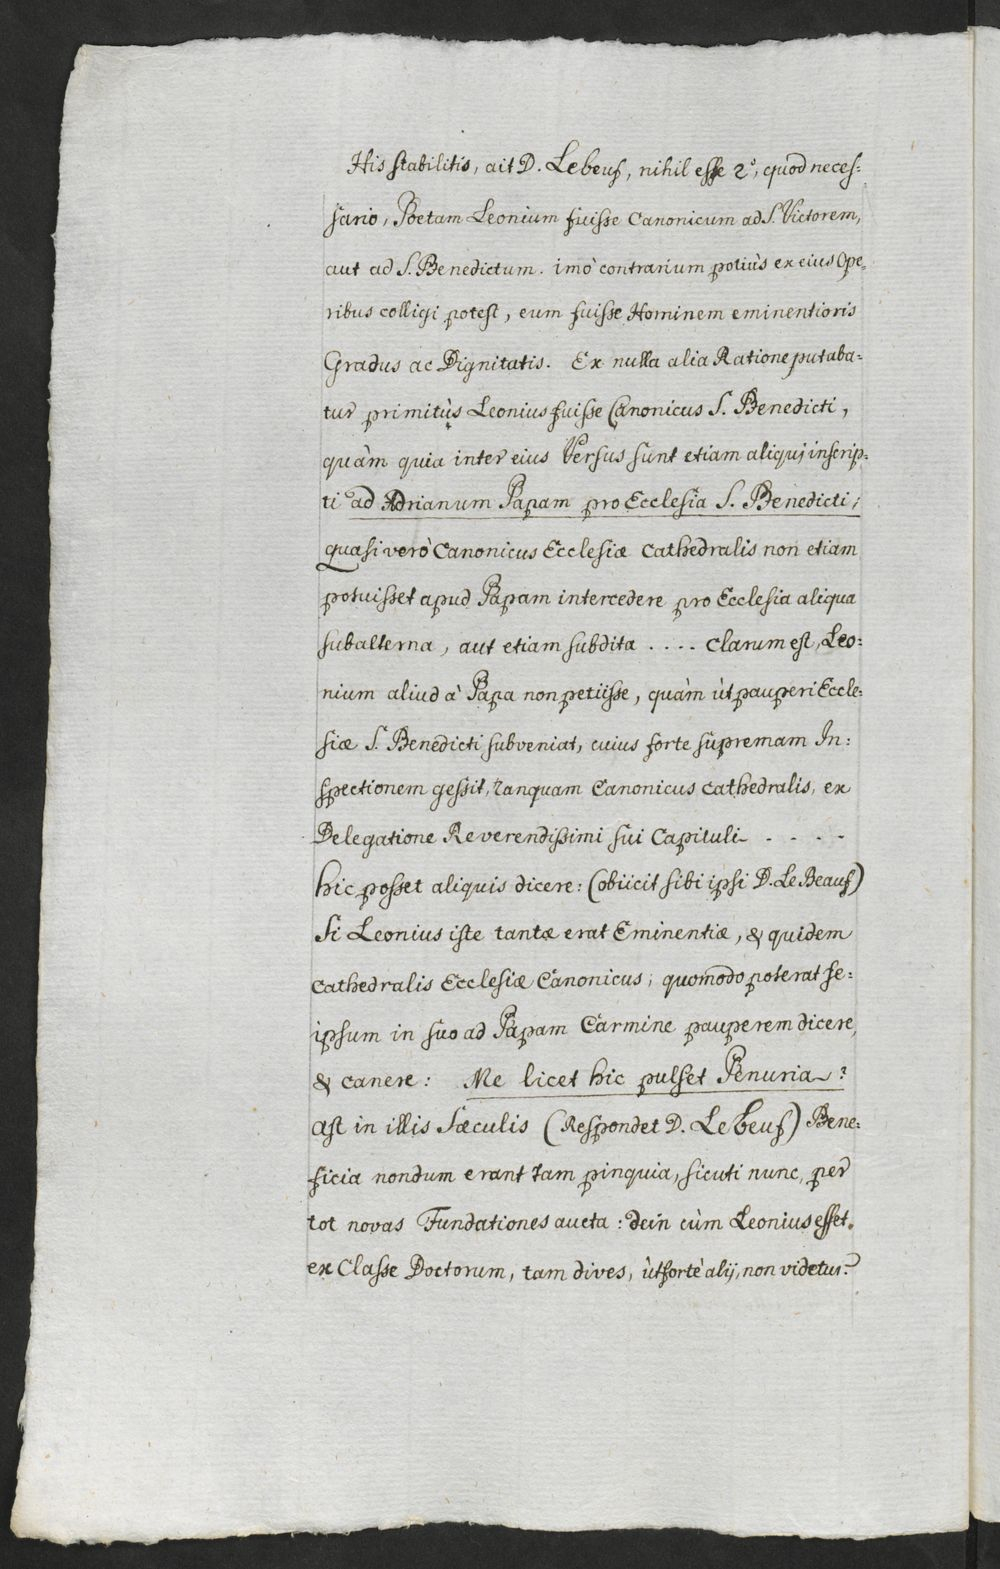 His stabilitis, ait D. Lebeuf, nihil esse 2º, quod neces:
sario, Poetam Leonium fuisse Canonicum ad S. Victorem,
aut ad S. Benedictum. imò contrarium potiùs ex eius Ope:
ribus colligi potest, eum fuisse Hominem eminentioris
Gradus ac Dignitatis. Ex nulla alia Ratione putaba:
tur primitùs Leonius fuisse Canonicus S. Benedicti,
quàm quia inter eius Versus sunt etiam aliqui inscrip:
ti ad Adrianum Papam pro Ecclesia S. Benedicti,
quasi verò Canonicus Ecclesiæ Cathedralis non etiam
potuisset apud Papam intercedere pro Ecclesia aliqua
subalterna, aut etiam subdita .... Clarum est, Leo:
nium aliud à Papa non petiisse, quàm ùt pauperi Eccle:
siæ S. Benedicti subveniat, cuius forte supremam In:
spectionem gessit, tanquam Canonicus Cathedralis, ex
Delegatione Reverendissimi sui Capituli - - - -
hic posset aliquis dicere: (obiicit sibi ipsi D. Le Beauf)
Si Leonius iste tantæ erat Eminentiæ, & quidem
Cathedralis Ecclesiæ Canonicus; quomodo poterat se:
ipsum in suo ad Papam Carmine pauperem dicere,
& canere: Me licet hic pulset Penuria?
ast in illis Sæculis (Respondet D. Lebeuf) Bene:
ficia nondum erant tam pinquia, sicuti nunc, per
tot novas Fundationes aucta: dein cùm Leonius esset
ex Classe Doctorum, tam dives, ùt fortè alij, non videtur?